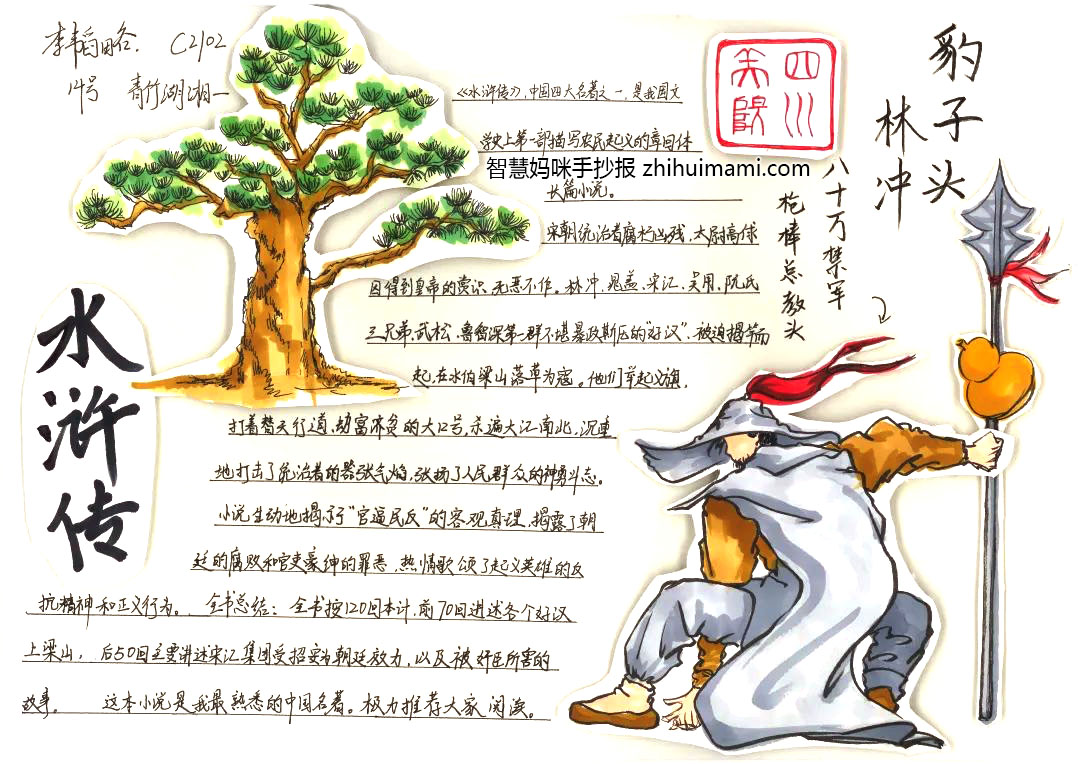 李韬略. C2102
14号 青竹湖湘一
四川
美院
豹子头
林冲
八十万禁军
枪棒总教头
水浒传
《水浒传》,中国四大名著之一,是我国文
学史上第一部描写农民起义的章回体
智慧妈咪手抄报 zhihuimami.com
长篇小说。
宋朝统治者腐朽凶残,太尉高俅
因得到皇帝的赏识,无恶不作。林冲、晁盖、宋江、吴用、阮氏
三兄弟、武松、鲁智深等一群不堪暴政欺压的“好汉”,被迫揭竿而
起,在水伯梁山落草为寇。他们举起义旗,
打着替天行道、劫富济贫的大口号,杀遍大江南北,沉重
地打击了统治者的嚣张气焰,张扬了人民群众的神勇斗志。
小说生动地揭示了“官逼民反”的客观真理,揭露了朝
廷的腐败和官吏豪绅的罪恶,热情歌颂了起义英雄的反
抗精神和正义行为。 全书总结:全书按120回本计,前70回讲述各个好汉
上梁山, 后50回主要讲述宋江集团受招安为朝廷效力,以及被奸臣所害的
故事。 这本小说是我最熟悉的中国名著。极力推荐大家阅读。